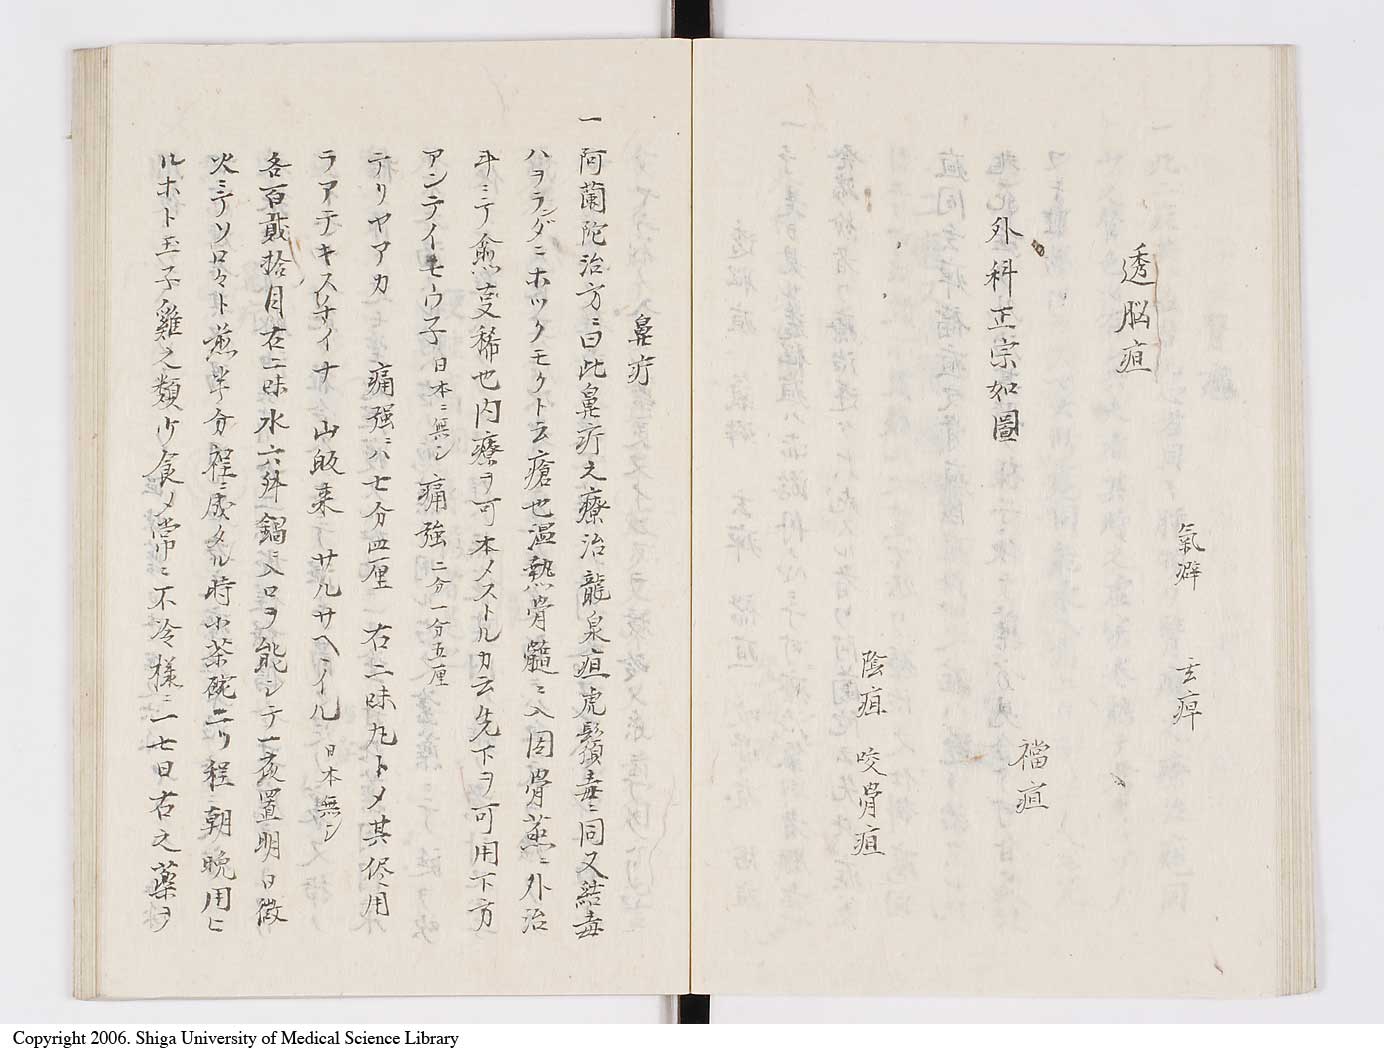 透脳疽
氣癖 玄痺
外科正宗如圖
襠疽
陰疽 咬骨疽
鼻疔
一 阿蘭陀治方ニ曰此鼻疔之療治龍泉疽虎鬚毒ニ同又結毒
ハヲランダニホツクモクト云瘡也温熱骨髓ニ入因骨蒸ニ外治
斗ミテ愈支稀也内療ヲ可本メストルカ云先下ヲ可用下方
アンテイモウ子 日本ニ無シ 痛強 二分一分五厘
テリヤアカ 痛強ニハ七分四厘 右二味丸トメ其侭用
ラアテキスチイナ 山皈来 サルサヘイル 日本無シ
各百貮拾目右二味水六舛鍋ニ入口ヲ能シテ一夜置明日微
火ミテソロ々ト煎半分程ニ成タル時小茶碗二ツ程朝晩用ヒ
ルホト玉子雞之類少食メ常ニ不冷樣ニ一七日右之藥ヲ
Copyright 2006. Shiga University of Medical Science Library